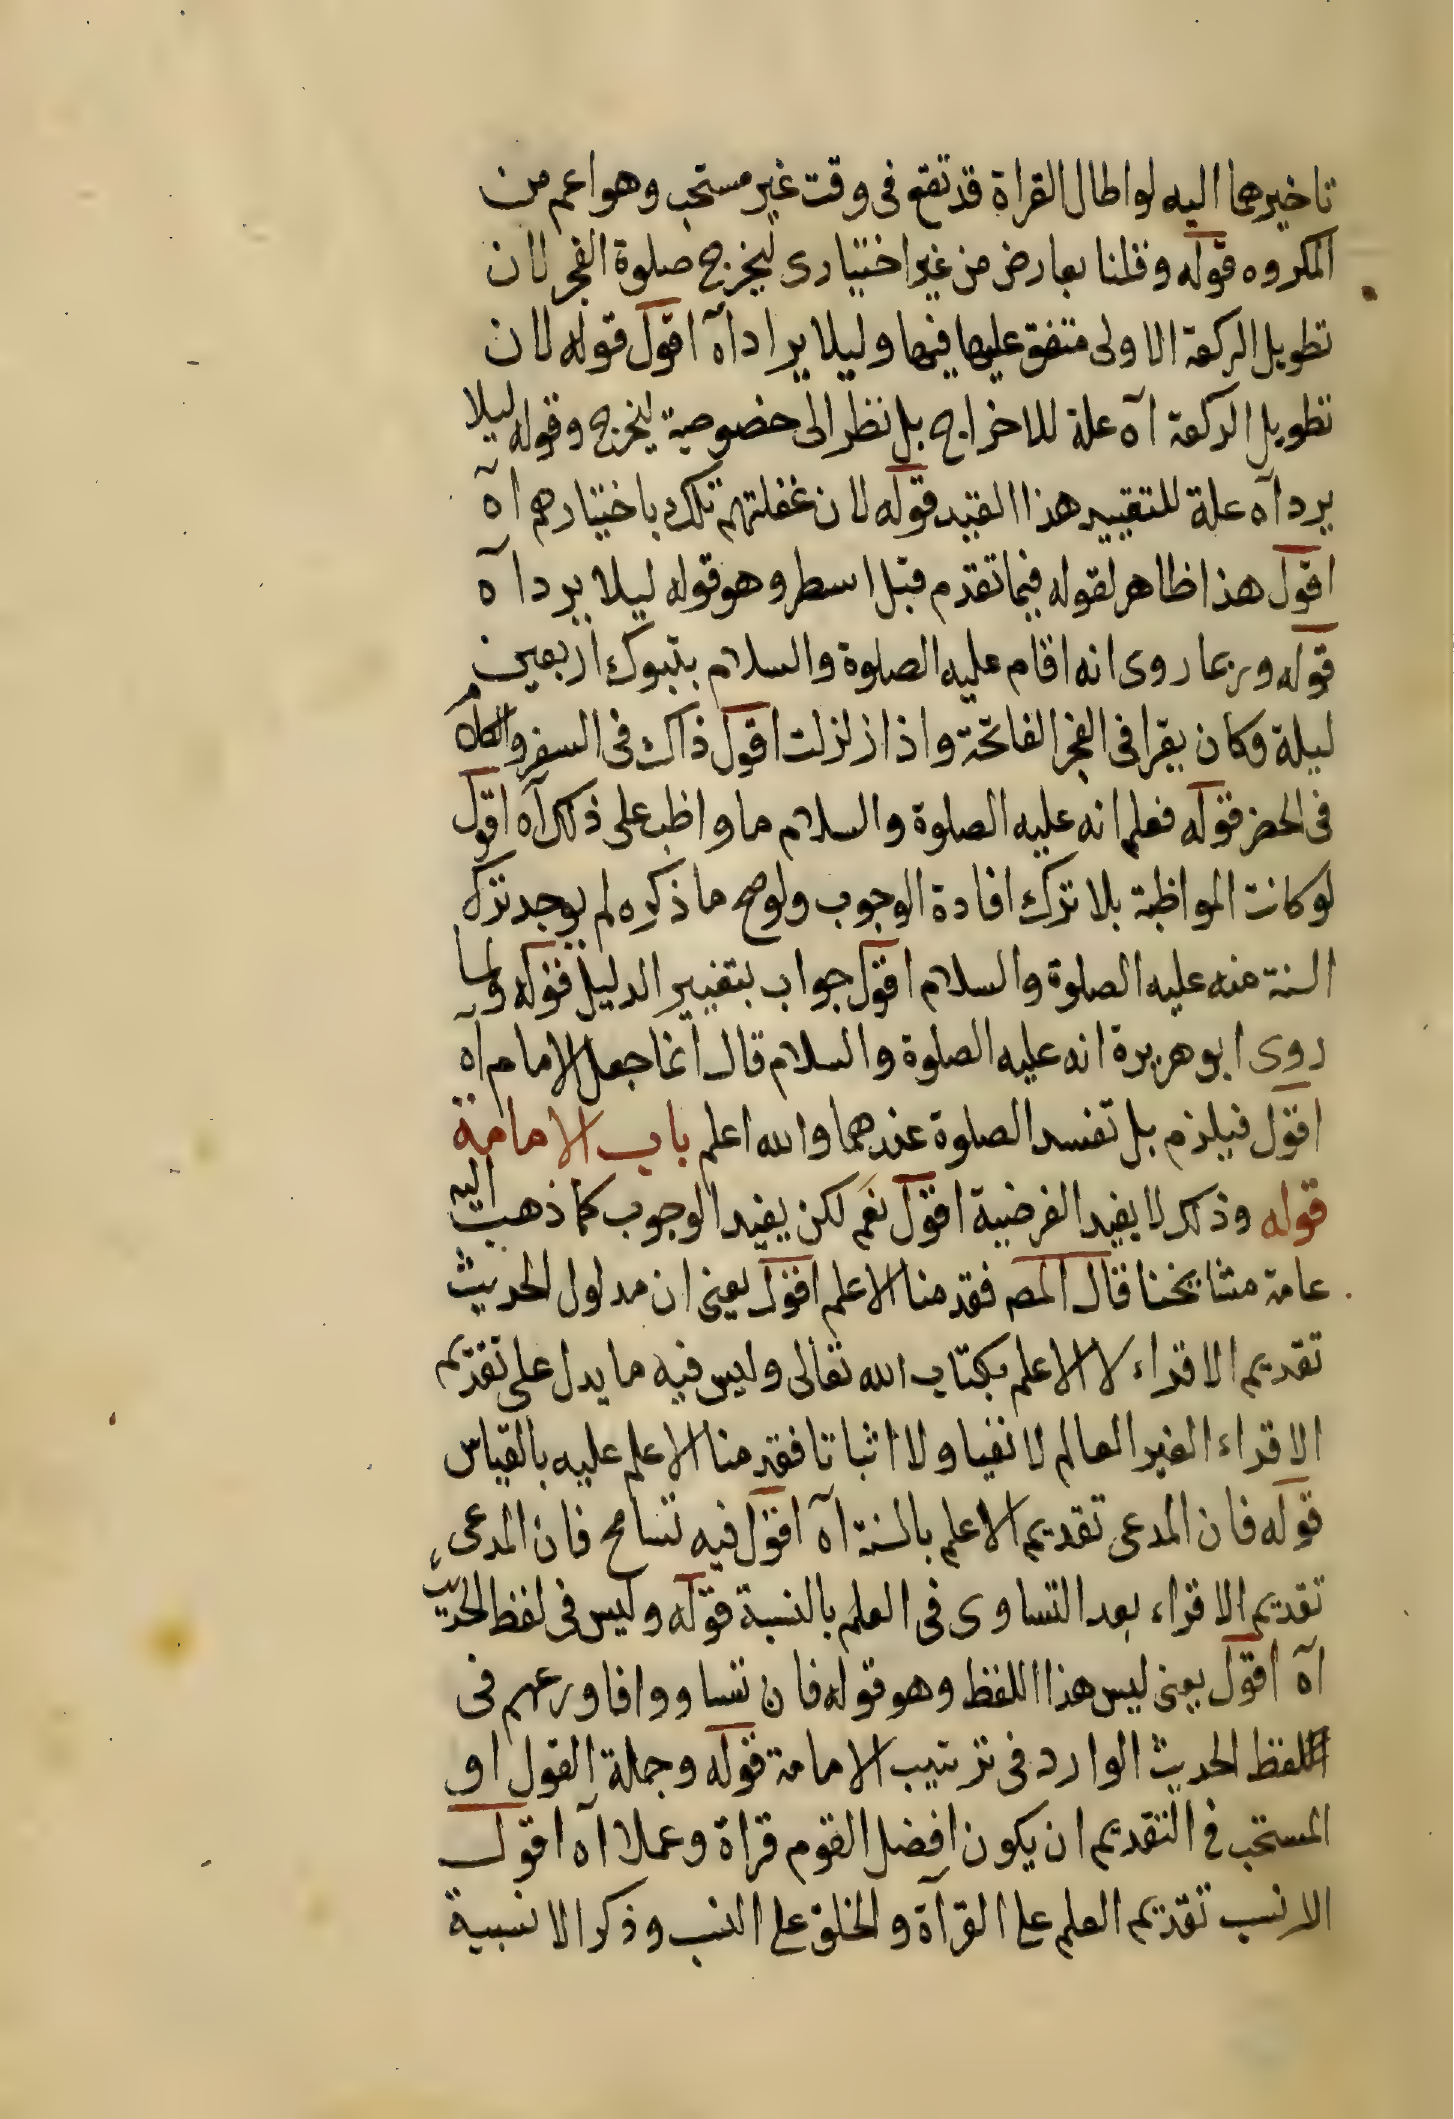 تاخيرهما اليه لو اطال القراة قد تقع فى وقت غير مستحب وهو اعم من
المكروه قوله وقلنا بعارض من غير اختيارى ليخرج صلوة الفجر لان
تطويل الركعة الاولى متفق عليها فيها وليلا يراد اه اقول قوله لان
تطويل الركعة اه علة للاخراج بل نظر الى خصوصية ليخرج وقوله ليلا
يرد اه علة للتقييد هذا القيد قوله لان غفلتهم تلك باختيارهم اه
اقول هذا ظاهر لقوله فيما تقدم قبل اسطر وهو قوله ليلا يرد اه
قوله وربما روى انه اقام عليه الصلوة والسلام بتبوك اربعين
ليلة وكان يقرا فى الفجر الفاتحة واذا زلزلت اقول ذاك فى السفر والكلام
فى الحضر قوله فعلم انه عليه الصلوة والسلام ما واظب على ذلك اه اقول
لو كانت المواظبة بلا ترك افادة الوجوب ولو صح ما ذكره لم يوجد ترك
السنة منه عليه الصلوة والسلام اقول جواب بتغيير الدليل قوله ولما
روى ابو هريرة انه عليه الصلوة والسلام قال انما جعل الامام اه
اقول فيلزم بل تفسد الصلوة عندهما والله اعلم باب الامامة
قوله وذلك لا يفيد الفرضية اقول نعم لكن يفيد الوجوب كما ذهبت اليه
عامة مشايخنا قال المص فقدمنا الاعلم اقول يعنى ان مدلول الحديث
تقديم الاقراء لا الاعلم بكتاب الله تعالى وليس فيه ما يدل على تقديم
الاقراء الغير العالم لا نفيا ولا اثباتا فقدمنا الاعلم عليه بالقياس
قوله فان المدعى تقديم الاعلم بالسنة اه اقول فيه تسامح فان المدعى
تقديم الاقراء بعد التساوى فى العلم بالنسبة قوله وليس فى لفظ الحديث
اه اقول يعنى ليس هذا اللفظ وهو قوله فان تساووا فاورعهم فى
لفظ الحديث الوارد فى ترتيب الامامة قوله وجملة القول او
المستحب فى التقديم ان يكون افضل القوم قراة وعملا اه اقول
الانسب تقديم العلم على القرآة والخلق على النسب وذكر الانسبية